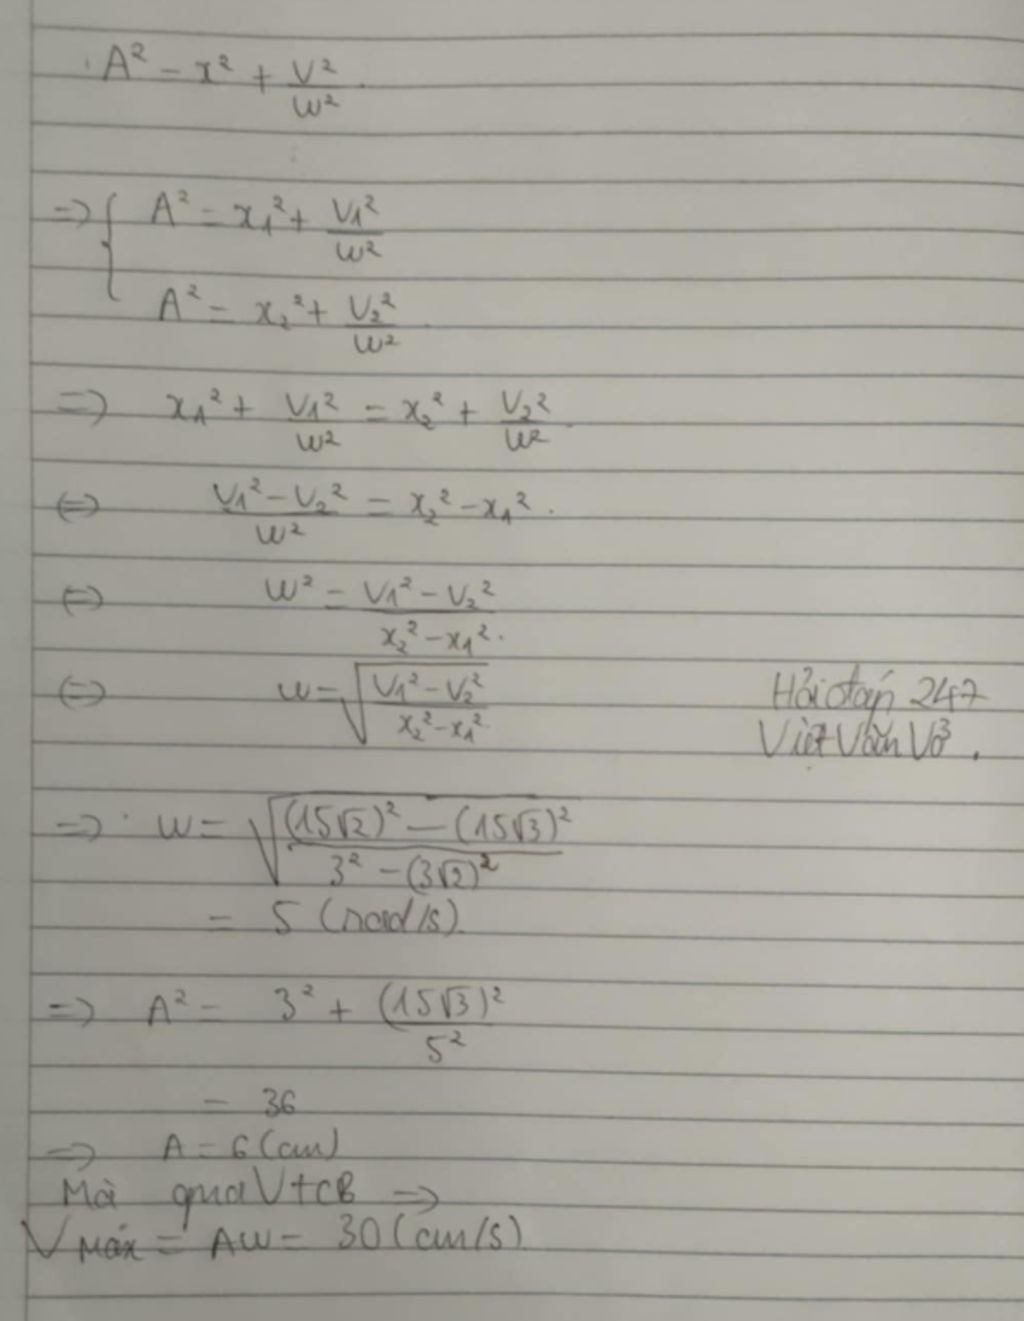 A² = x² + V²/W²
=> { A² = x₁² + V₁²/W²
A² = x₂² + V₂²/W²
=> x₁² + V₁²/W² = x₂² + V₂²/W²
<=> (V₁² - V₂²)/W² = x₂² - x₁²
<=> W² = (V₁² - V₂²)/(x₂² - x₁²)
<=> W = √((V₁² - V₂²)/(x₂² - x₁²))
Hỏi đáp 247
Viết Văn Vở
=> W = √(((15√2)² - (15√3)²)/(3² - (3√2)²))
= 5 (rad/s)
=> A² = 3² + (15√3)²/5²
= 36
=> A = 6 (cm)
Mà qua VTCB =>
V Max = AW = 30 (cm/s)